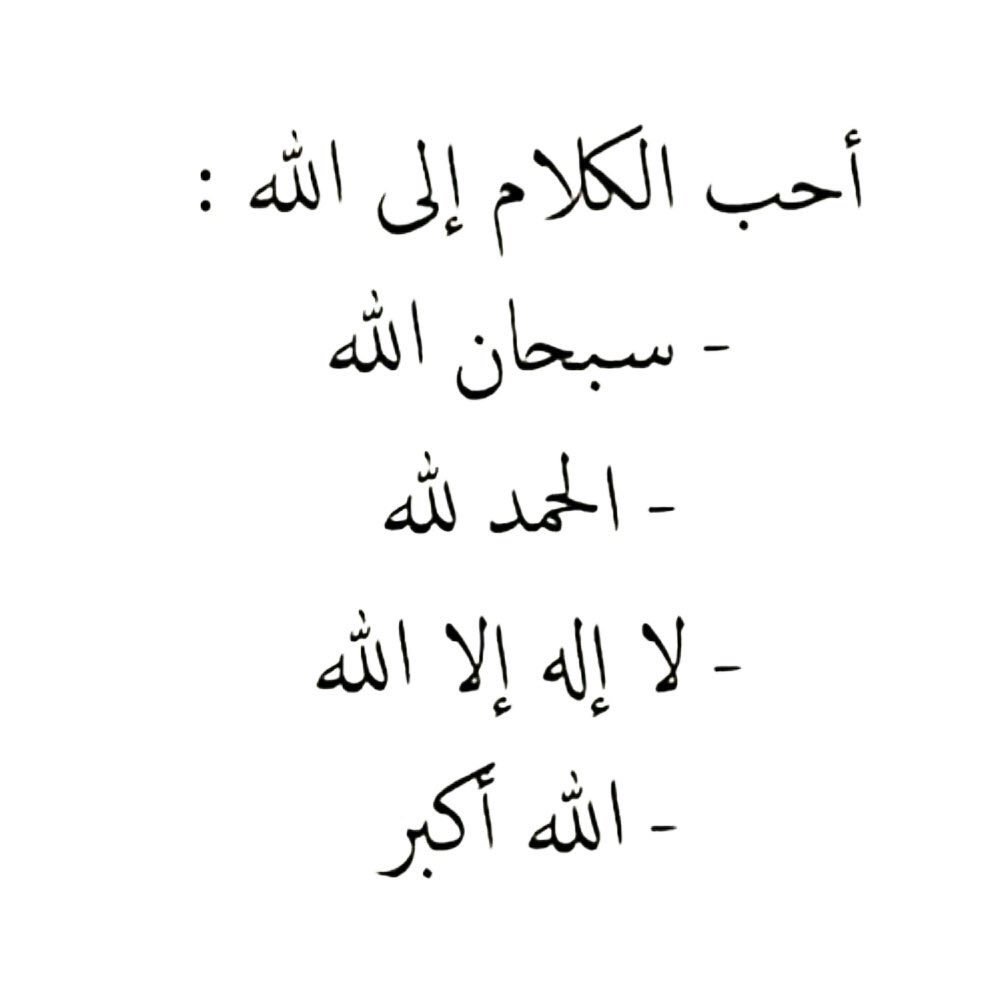 أحب الكلام إلى الله :
- سبحان الله
- الحمد لله
- لا إله إلا الله
- الله أكبر